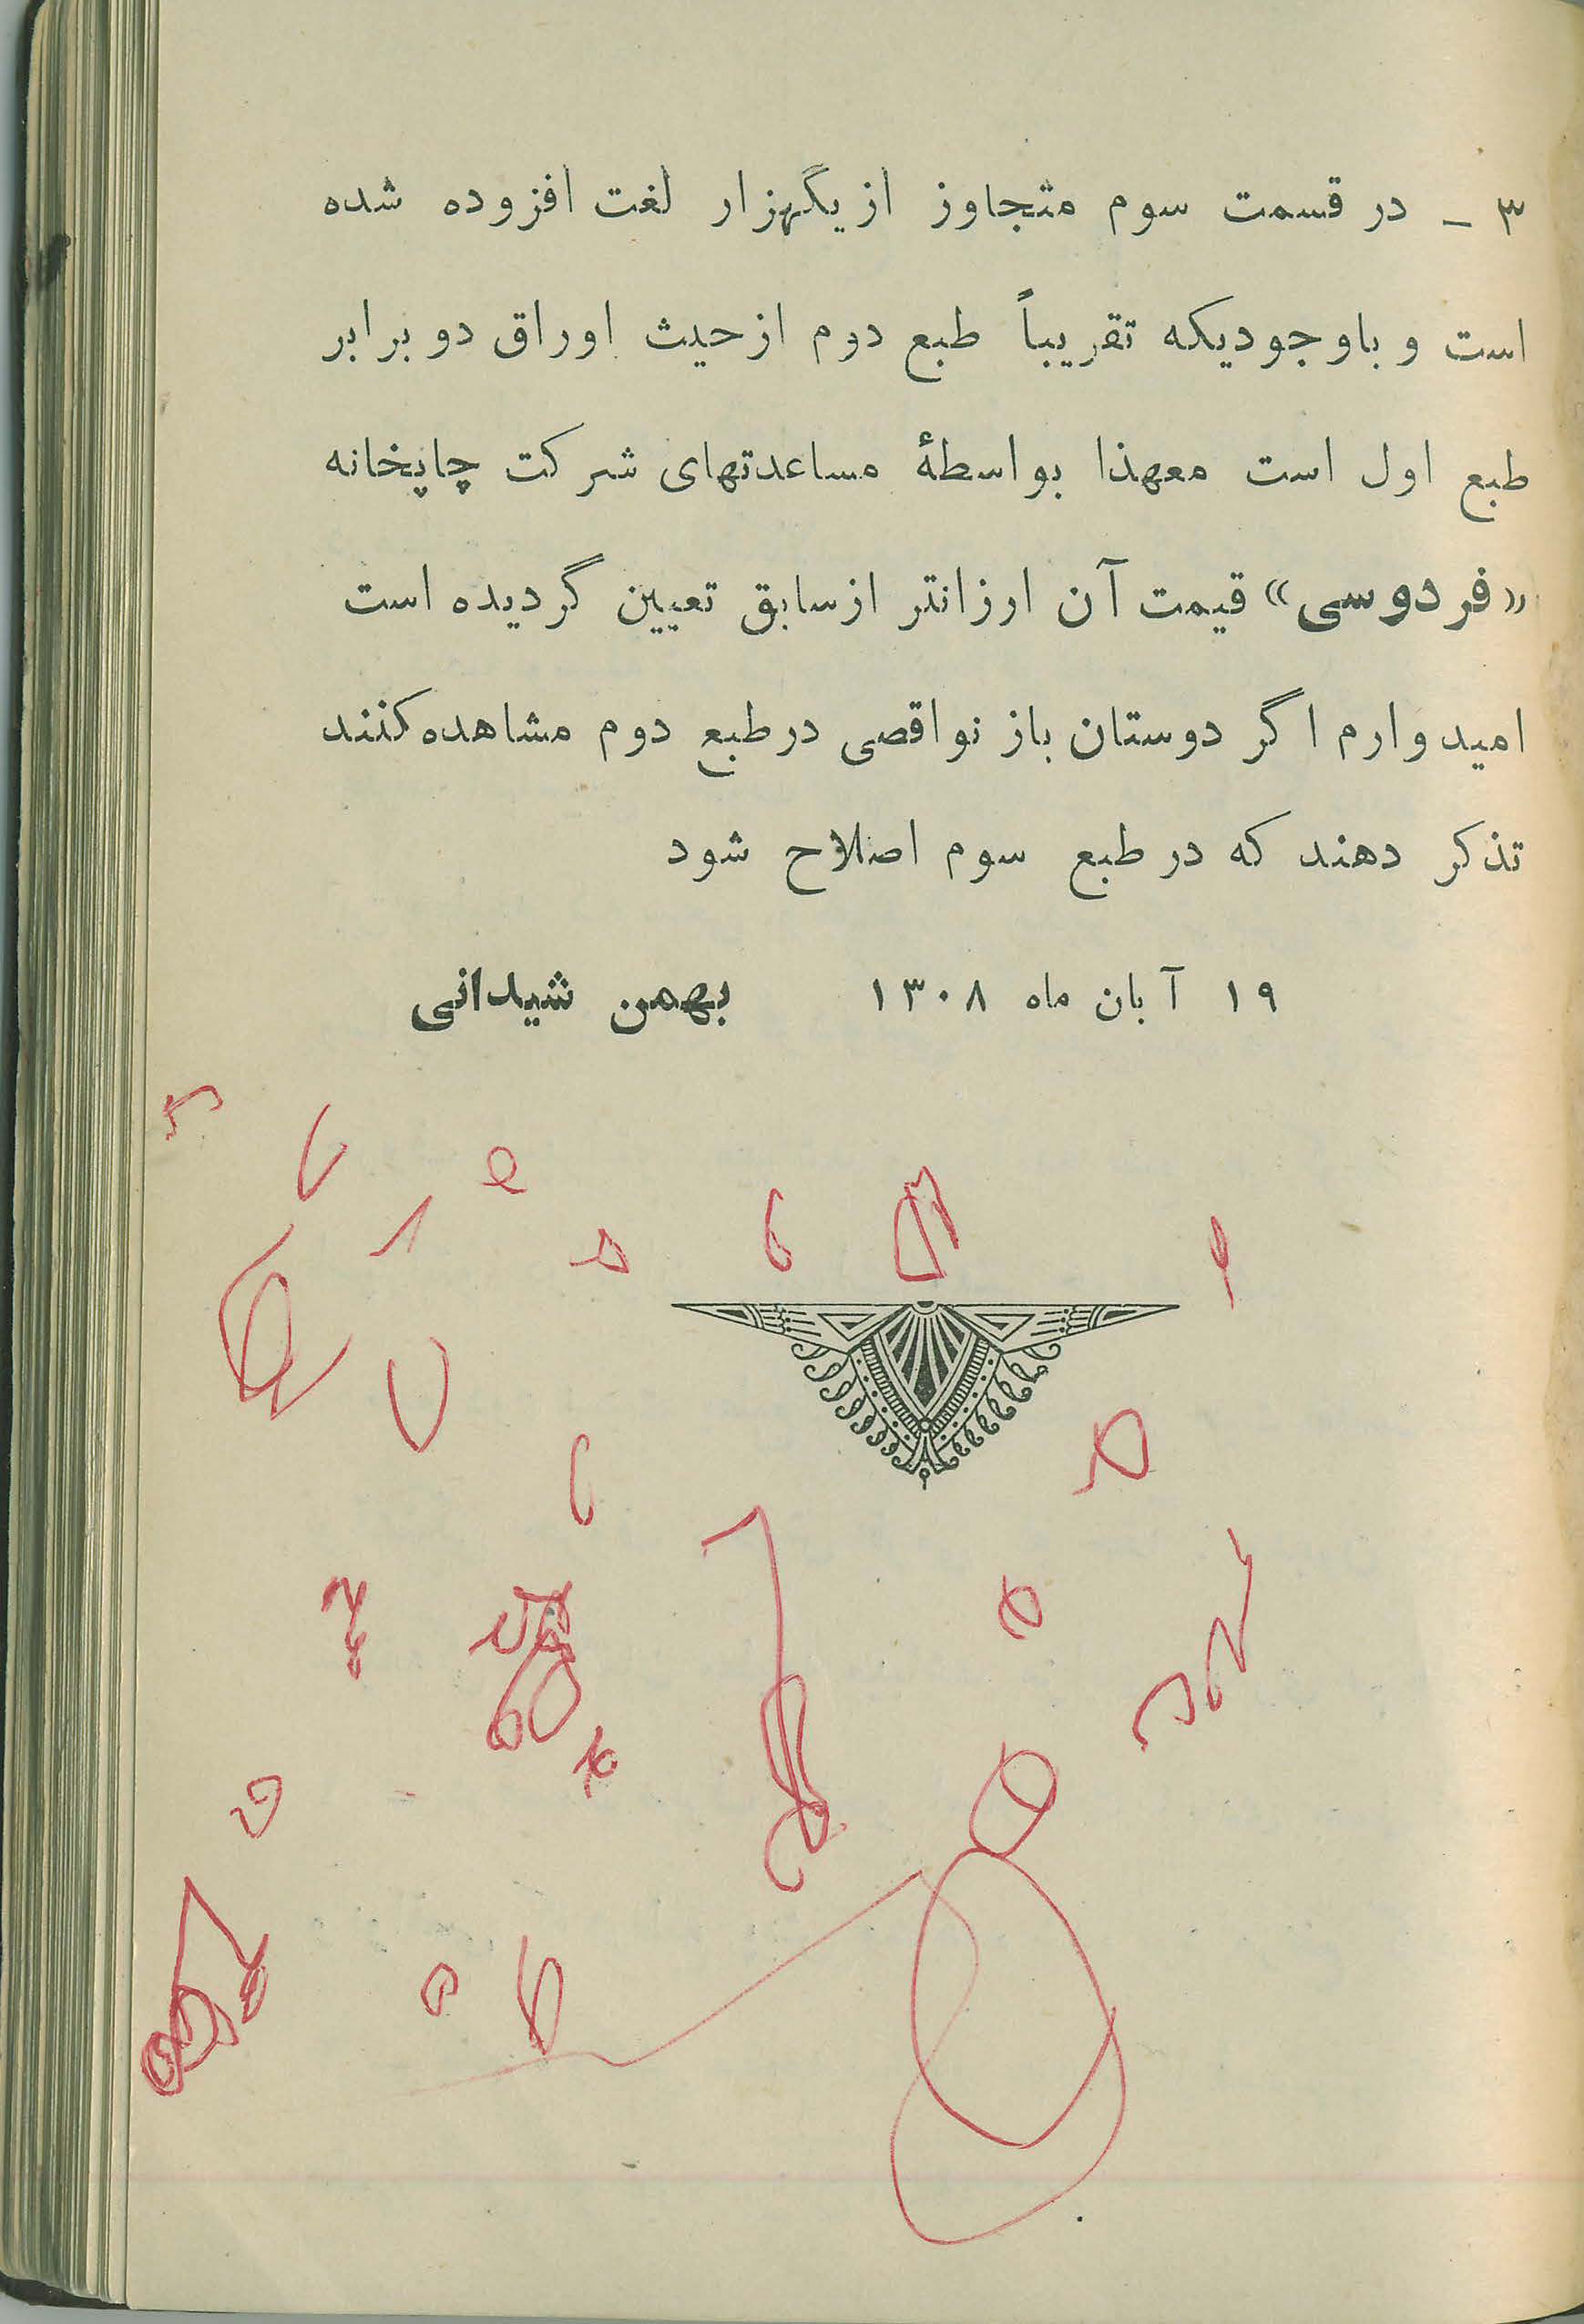 ۳ ـ در قسمت سوم متجاوز از یگهزار لغت افزوده شده
است و باوجودیکه تقریباً طبع دوم از حیث اوراق دو برابر
طبع اول است معهذا بواسطهٔ مساعدتهای شرکت چاپخانه
«فردوسی» قیمت آن ارزانتر از سابق تعیین گردیده است
امیدوارم اگر دوستان باز نواقصی در طبع دوم مشاهده کنند
تذکر دهند که در طبع سوم اصلاح شود
۱۹ آبان ماه ۱۳۰۸ بهمن شیدانی